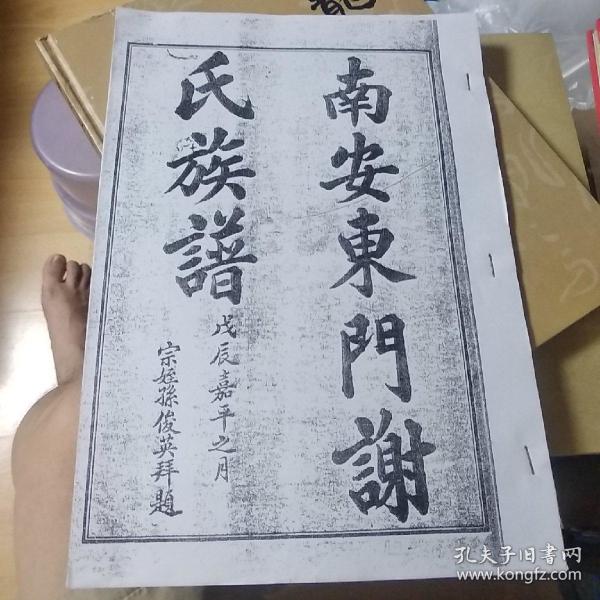 南安東門謝
氏族譜
戊辰嘉平之月
宗姪孫俊英拜題
孔夫子旧书网
www.kongfz.com